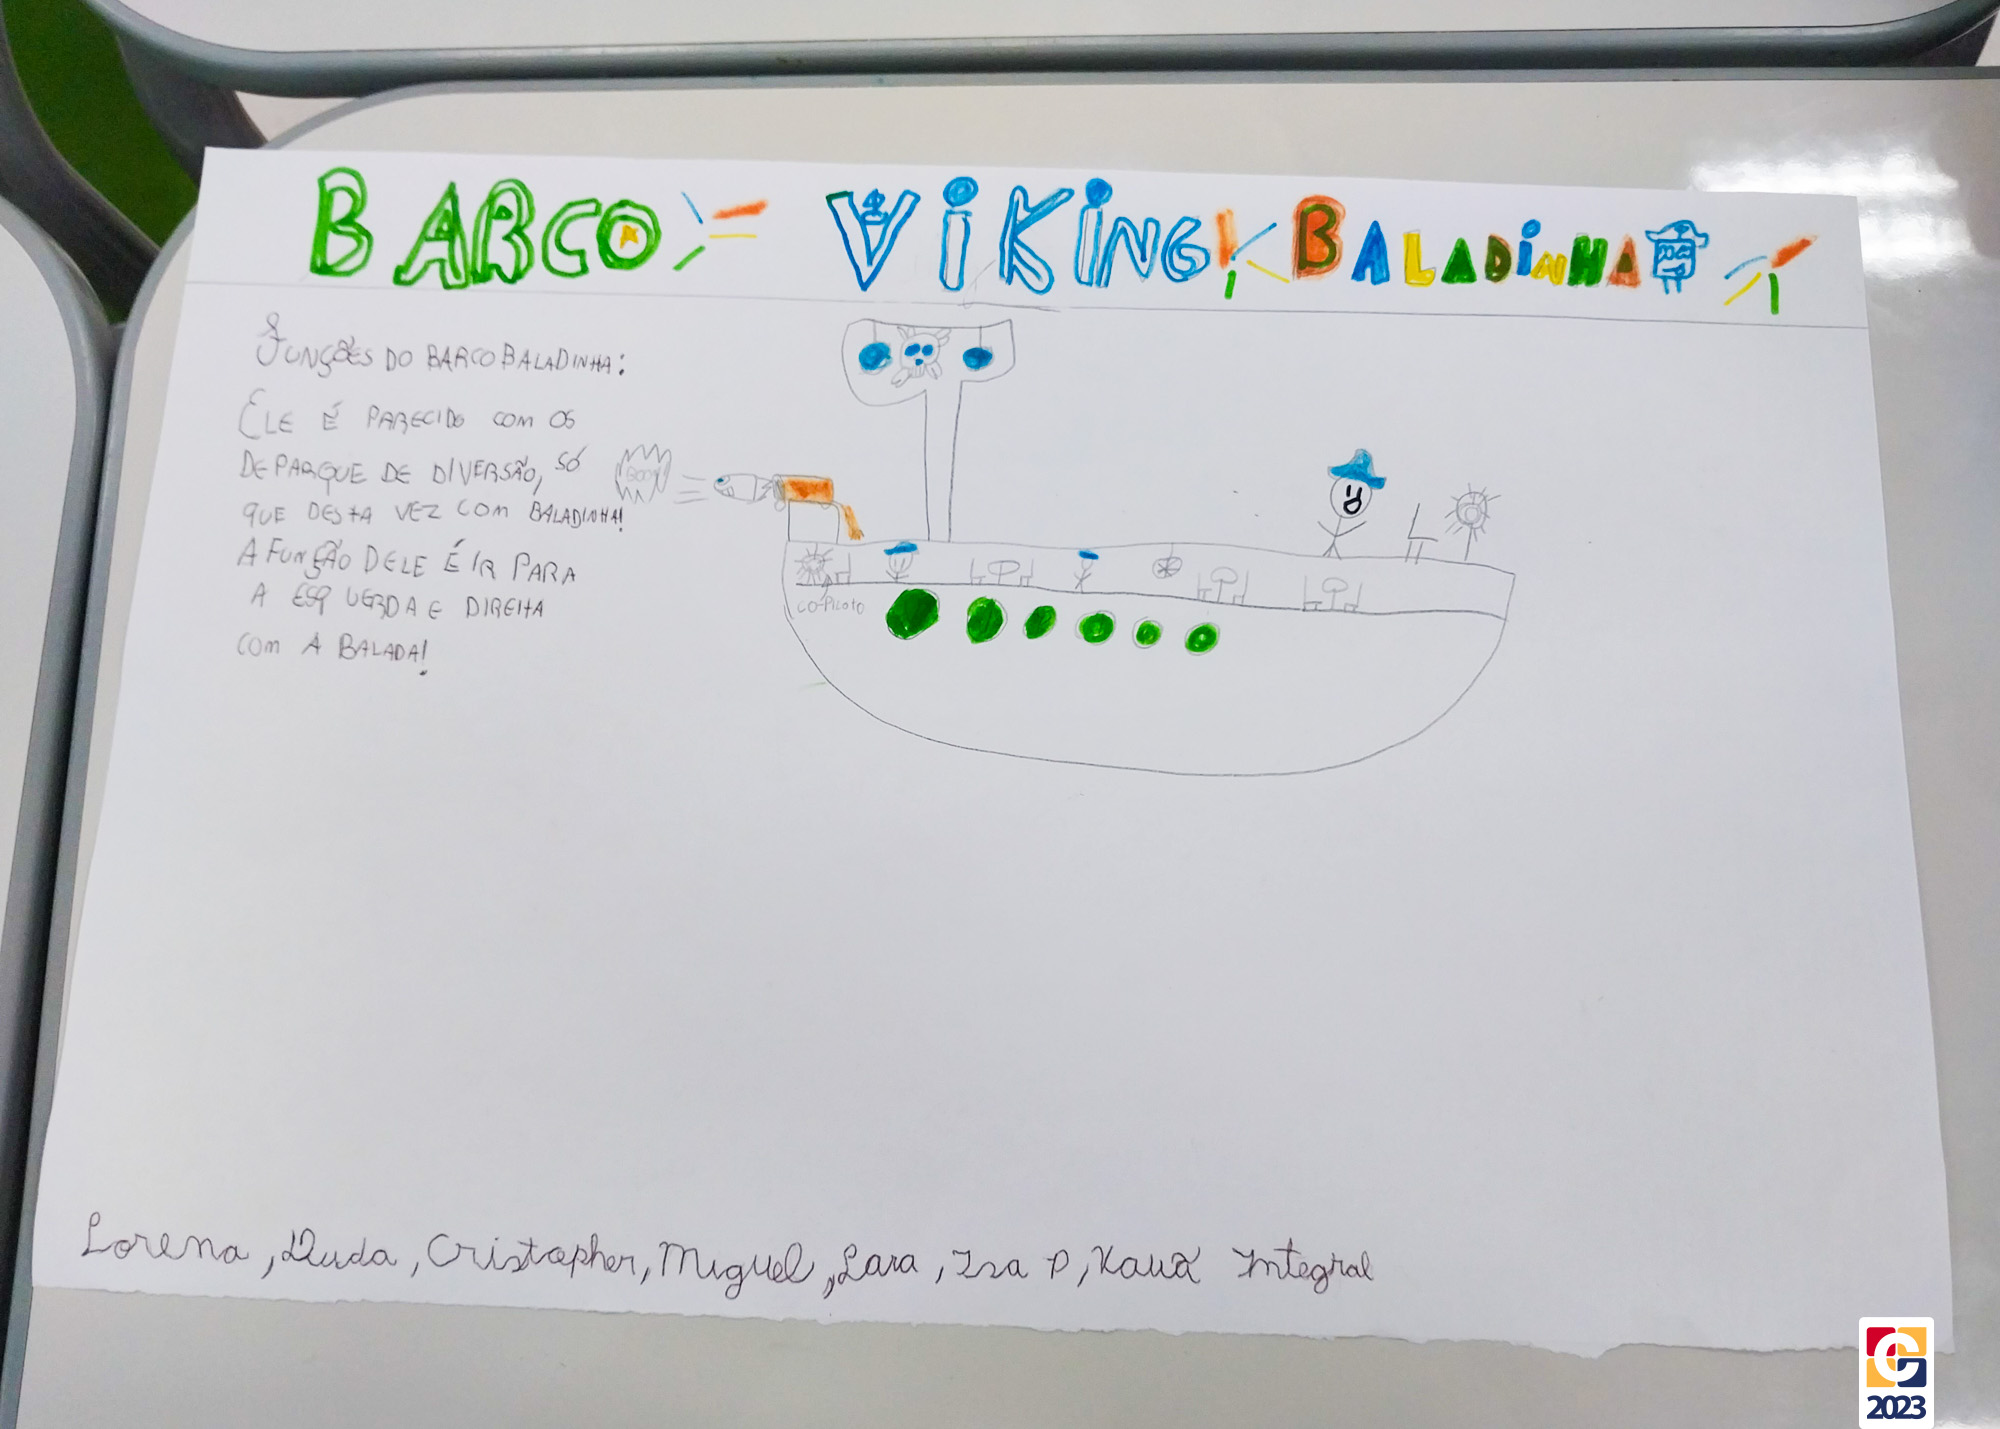 BARCO VIKING BALADINHA
FUNÇÕES DO BARCO BALADINHA:
ELE É PARECIDO COM OS
DE PARQUE DE DIVERSÃO, SÓ
QUE DESTA VEZ COM BALADINHA!
A FUNÇÃO DELE É IR PARA
A ESQUERDA E DIREITA
COM A BALADA!
CO-PILOTO
Lorena, Duda, Cristopher, Miguel, Lara, Isa P, Kauã Integral
2023